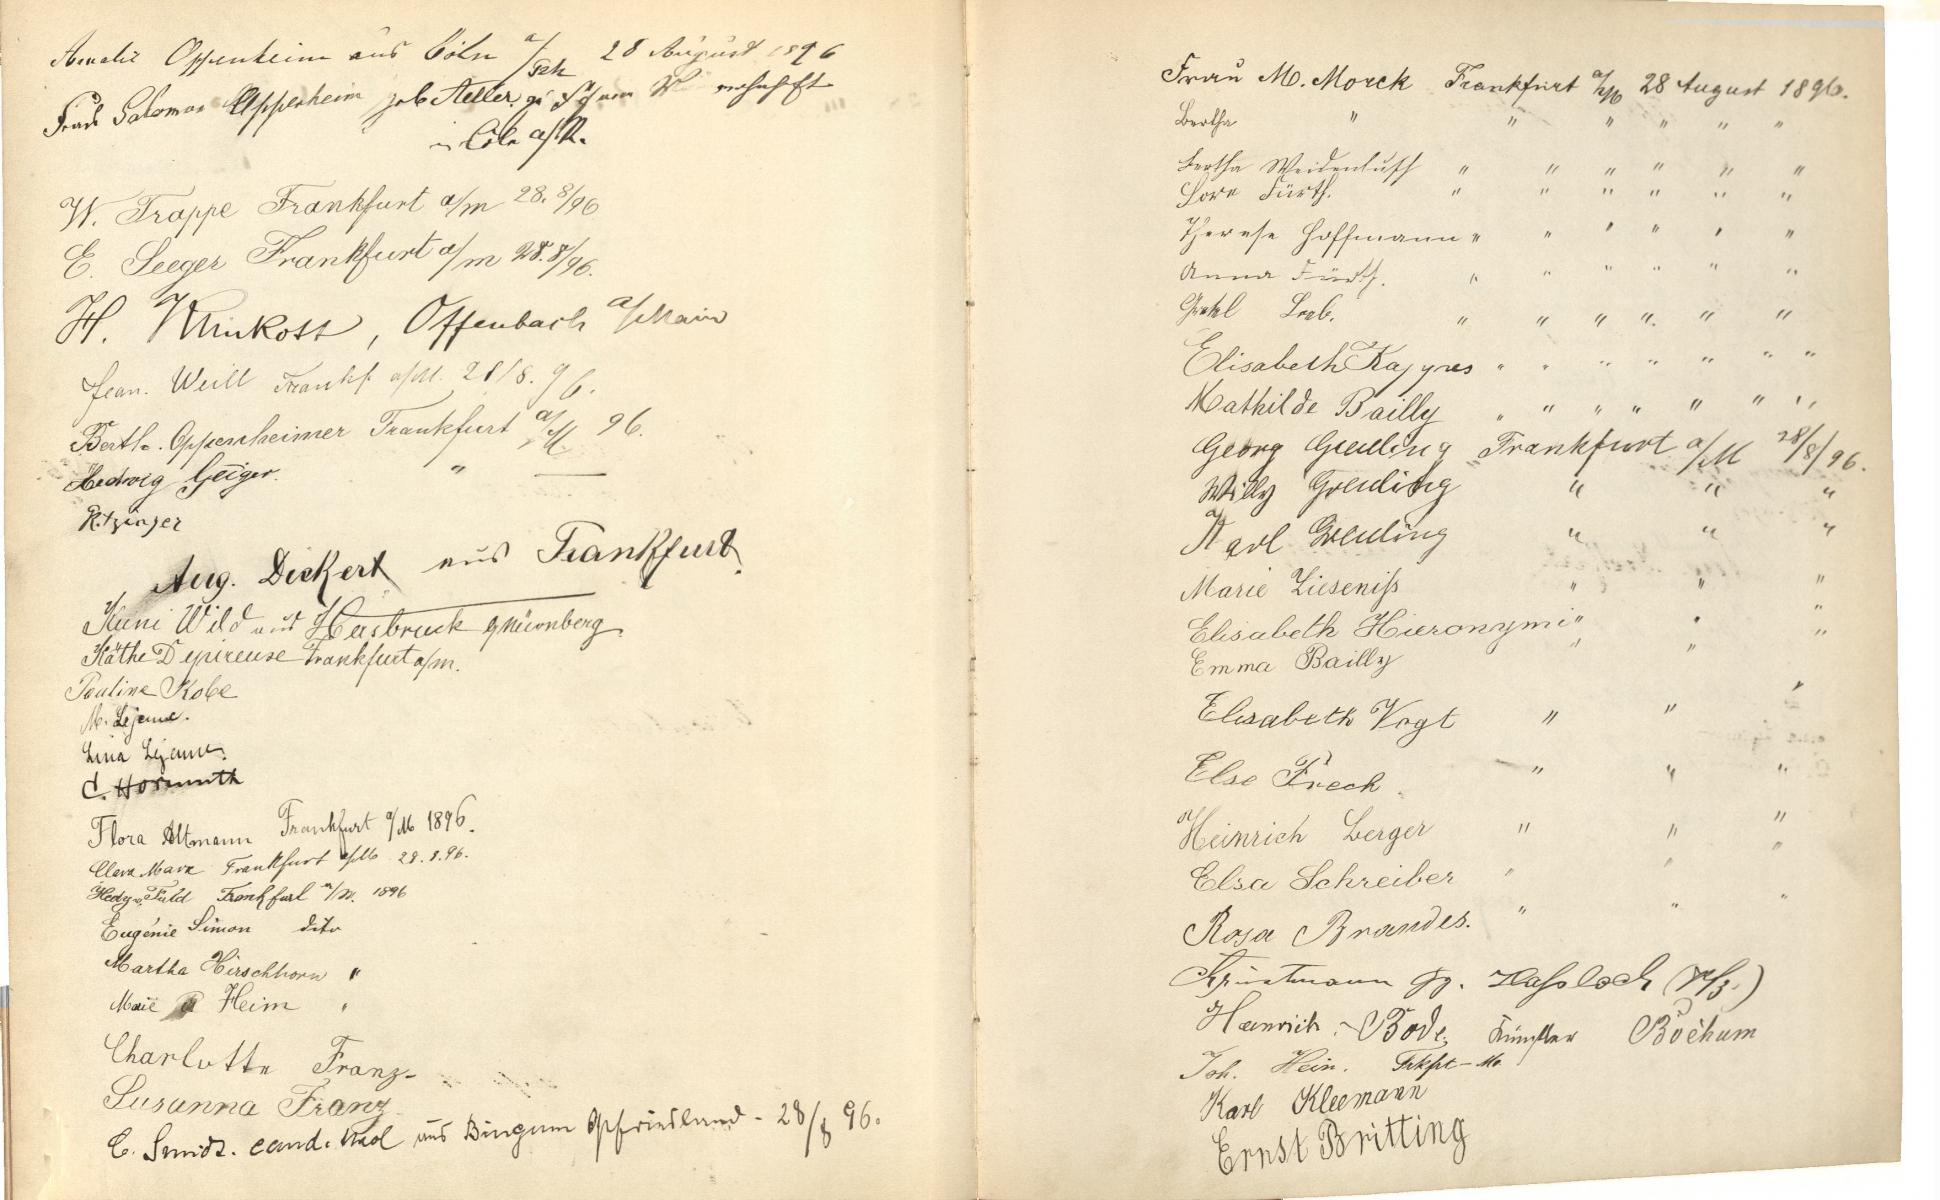 Amalie Oppenheim aus Cöln a/Rh 28 August 1896
Frau Salomon Oppenheim geb
in Cöln a/R.
W. Trappe Frankfurt a/m 28. 8/96
E. Seeger Frankfurt a/m 28. 8/96.
H. Offenbach a/Main
Jean. Weill Frankf. a/M. 28/8. 96.
Berth. Oppenheimer Frankfurt a/M 96.
Hedwig Geiger. " —
Ritzinger
Aug. Dickert aus Frankfurt.
Kuni Wild aus Hersbruck b/Nürnberg
Käthe Depireuse Frankfurt a/m.
Pauline Kobe
M. Lejeune.
Lina Lejeune.
C. Hormuth
Flora Altmann Frankfurt a/M 1896.
Clara Marx Frankfurt a/M 28.8.96.
Hedy v. Fuld Frankfurt a/M. 1896
Eugénie Simon dito
Martha Hirschhorn "
Marie Heim "
Charlotte Franz-
Susanna Franz
E. Smidt. cand. aus Bingum Ostfriesland - 28/8 96.
Frau M. Morck Frankfurt a/M 28 August 1896.
Bertha " " " " " "
Bertha Weidenbusch " " " " " "
Fürth. " " " " " "
Therese Hoffmann " " " " " "
Anna Fürth. " " " " " "
" " " " " "
Elisabeth " " " " " " "
Mathilde Bailly " " " " " " "
Georg Greuling Frankfurt a/M 28/8/96.
Willy Greuling " " "
Karl Greuling " " "
Marie Lieseniss " " "
Elisabeth Hieronymi " " "
Emma Bailly " " "
Elisabeth Vogt " " "
Else Frech " " "
Heinrich Berger " " "
Elsa Schreiber " " "
Rosa Brandes. " " "
Hassloch (Pfz.)
Heinrich Bode, Künstler Bochum
Joh. Hein. Frkft-M.
Karl Kleemann
Ernst Britting